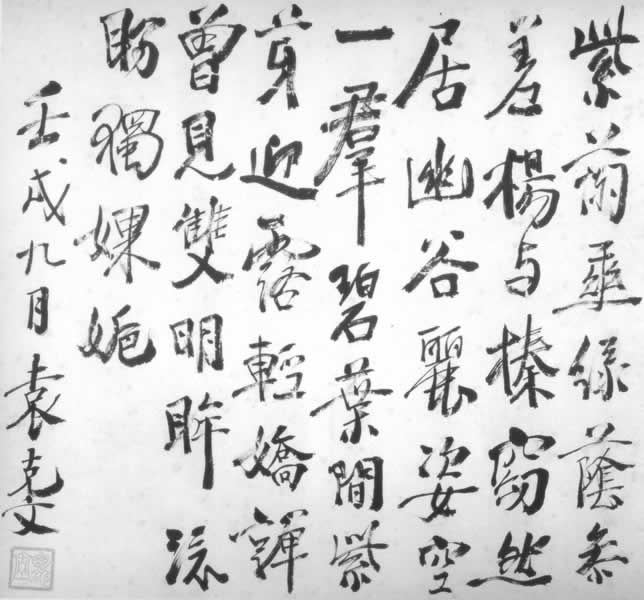 紫蘭垂綠蔭參
差楊与榛窈然
居幽谷麗姿空
一羣碧葉間紫
芽迎露輕嬌嚲
曾見雙明眸流
盼獨婐
壬戌九月袁克文